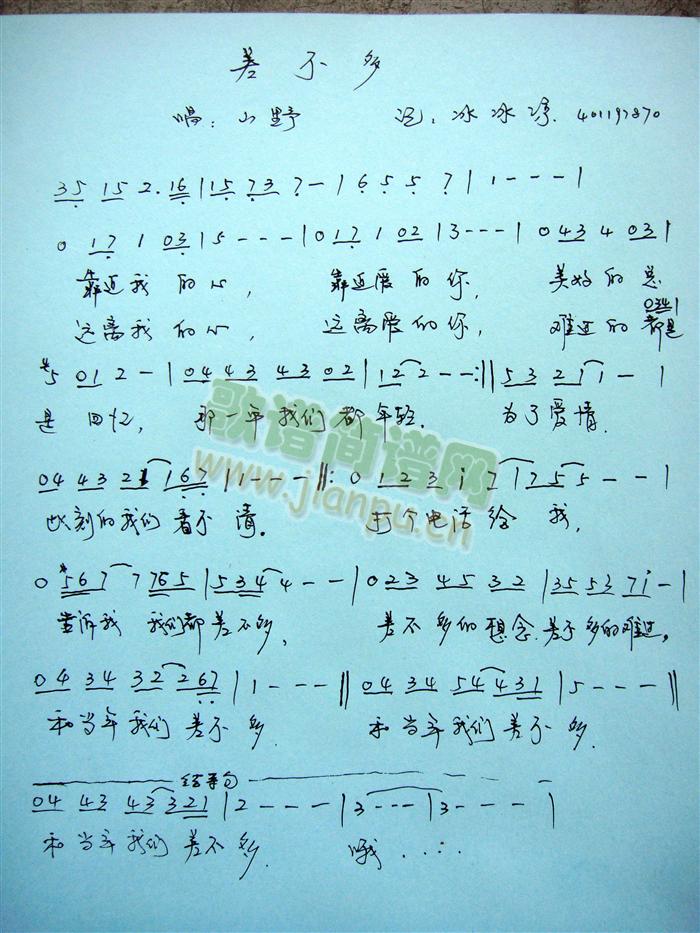 差不多
唱：山野 记：冰冰 401197870
35 15 2. 16 | 15 73 7 - | 6 5 5 7 | 1 - - - |
0 17 1 03 | 5 - - - | 0 17 1 02 | 3 - - - | 0 43 4 03 |
靠近我的心， 靠近爱的你， 美好的总
远离我的心， 远离爱的你， 难过的都是
0341
#5 01 2 - | 04 43 43 02 | 12 2 - - :|| 53 21 1 - |
是回忆， 那一年我们都年轻. 为了爱情
04 43 21 167 | 1 - - - ||: 0 123 i 7 | 1755 - - |
此刻的我们看不清。 打个电话给我，
0 #567 7765 | 5344 - - | 0 23 45 32 | 35 53 7i - |
告诉我 我们都差不多， 差不多的想念.差不多的难过。
04 34 32 267 | 1 - - - || 04 34 54 431 | 5 - - - ||
和当年我们差不多. 和当年我们差不多.
结束句
04 43 43 321 | 2 - - - | 3 - - - | 3 - - - - |
和当年我们差不多. 哦......
歌谱简谱网
www.jianpu.cn